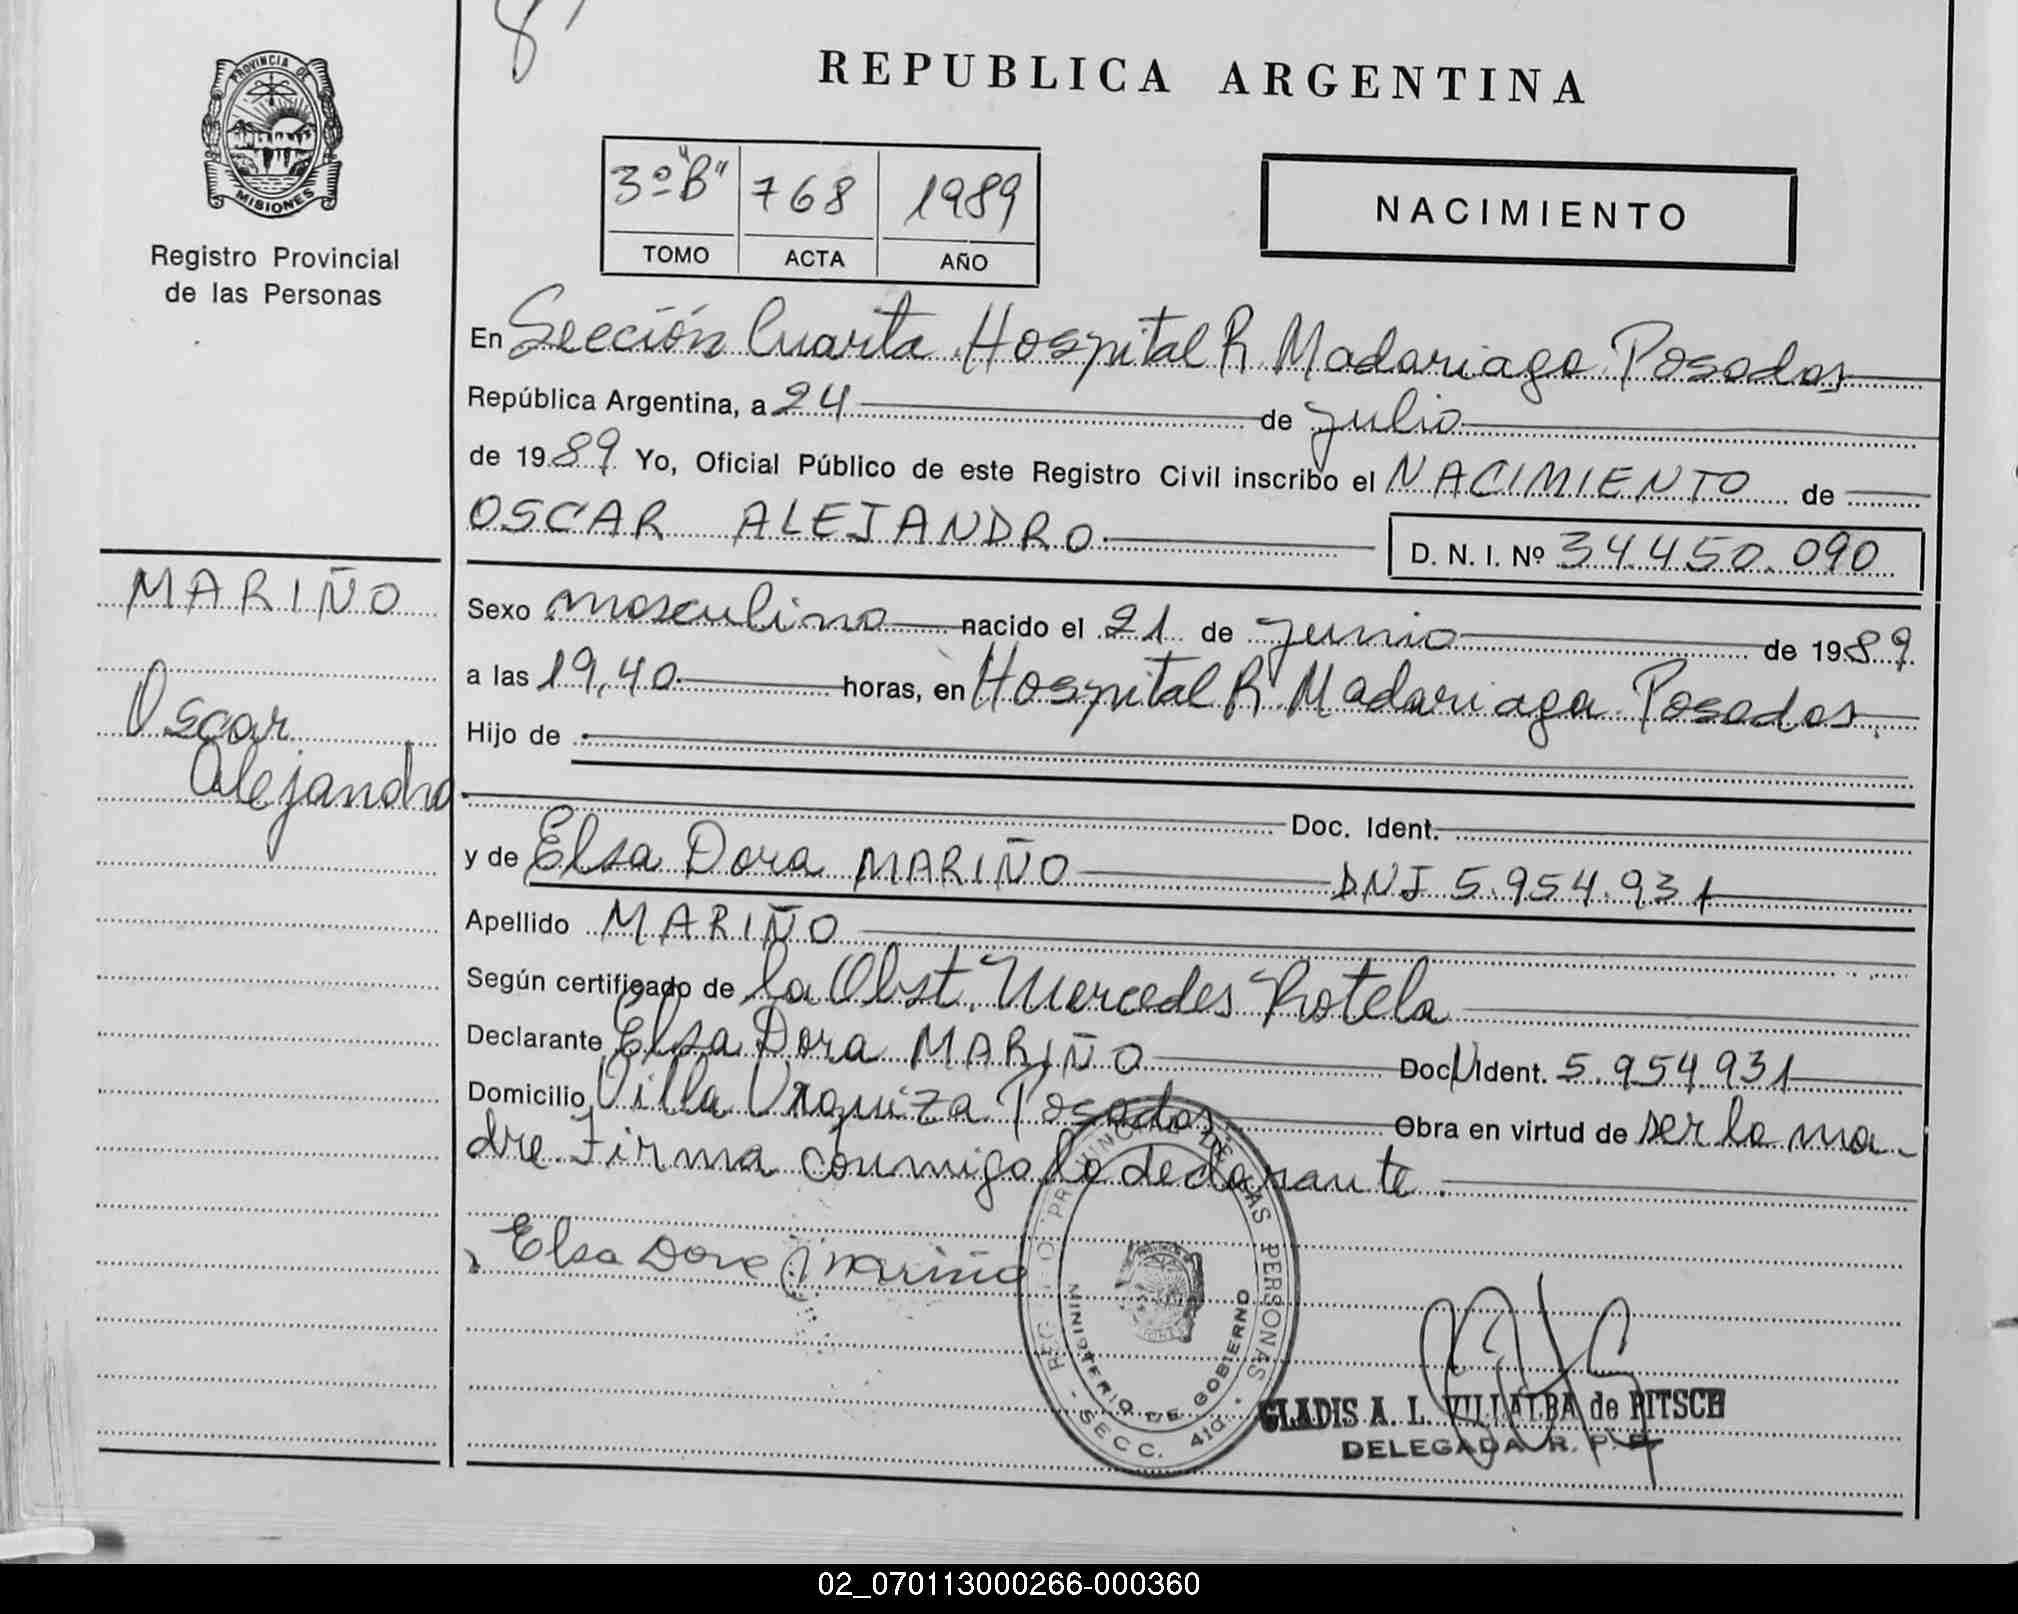 8
PROVINCIA DE
MISIONES
Registro Provincial
de las Personas
REPUBLICA ARGENTINA
3º "B" 768 1989
TOMO ACTA AÑO
NACIMIENTO
En Sección Cuarta Hospital R. Madariaga Posadas
República Argentina, a 24 de julio
de 1989 Yo, Oficial Público de este Registro Civil inscribo el NACIMIENTO de
OSCAR ALEJANDRO D. N. I. Nº 34.450.090
MARIÑO
Oscar
Alejandro
Sexo masculino nacido el 21 de junio de 1989
a las 19,40 horas, en Hospital R. Madariaga Posadas
Hijo de
Doc. Ident.
y de Elsa Dora MARIÑO DNI 5.954.931
Apellido MARIÑO
Según certificado de la Obst. Mercedes Rotela
Declarante Elsa Dora MARIÑO Doc. Ident. 5.954.931
Domicilio Villa Urquiza Posadas Obra en virtud de ser la ma-
dre. Firma conmigo la declarante.
Elsa Dora Mariño
PROVINCIAL DE LAS PERSONAS
MINISTERIO DE GOBIERNO
SECC. 4ta.
GLADIS A. L. VILLALBA de PITSCH
DELEGADA R. P. P.
02_070113000266-000360